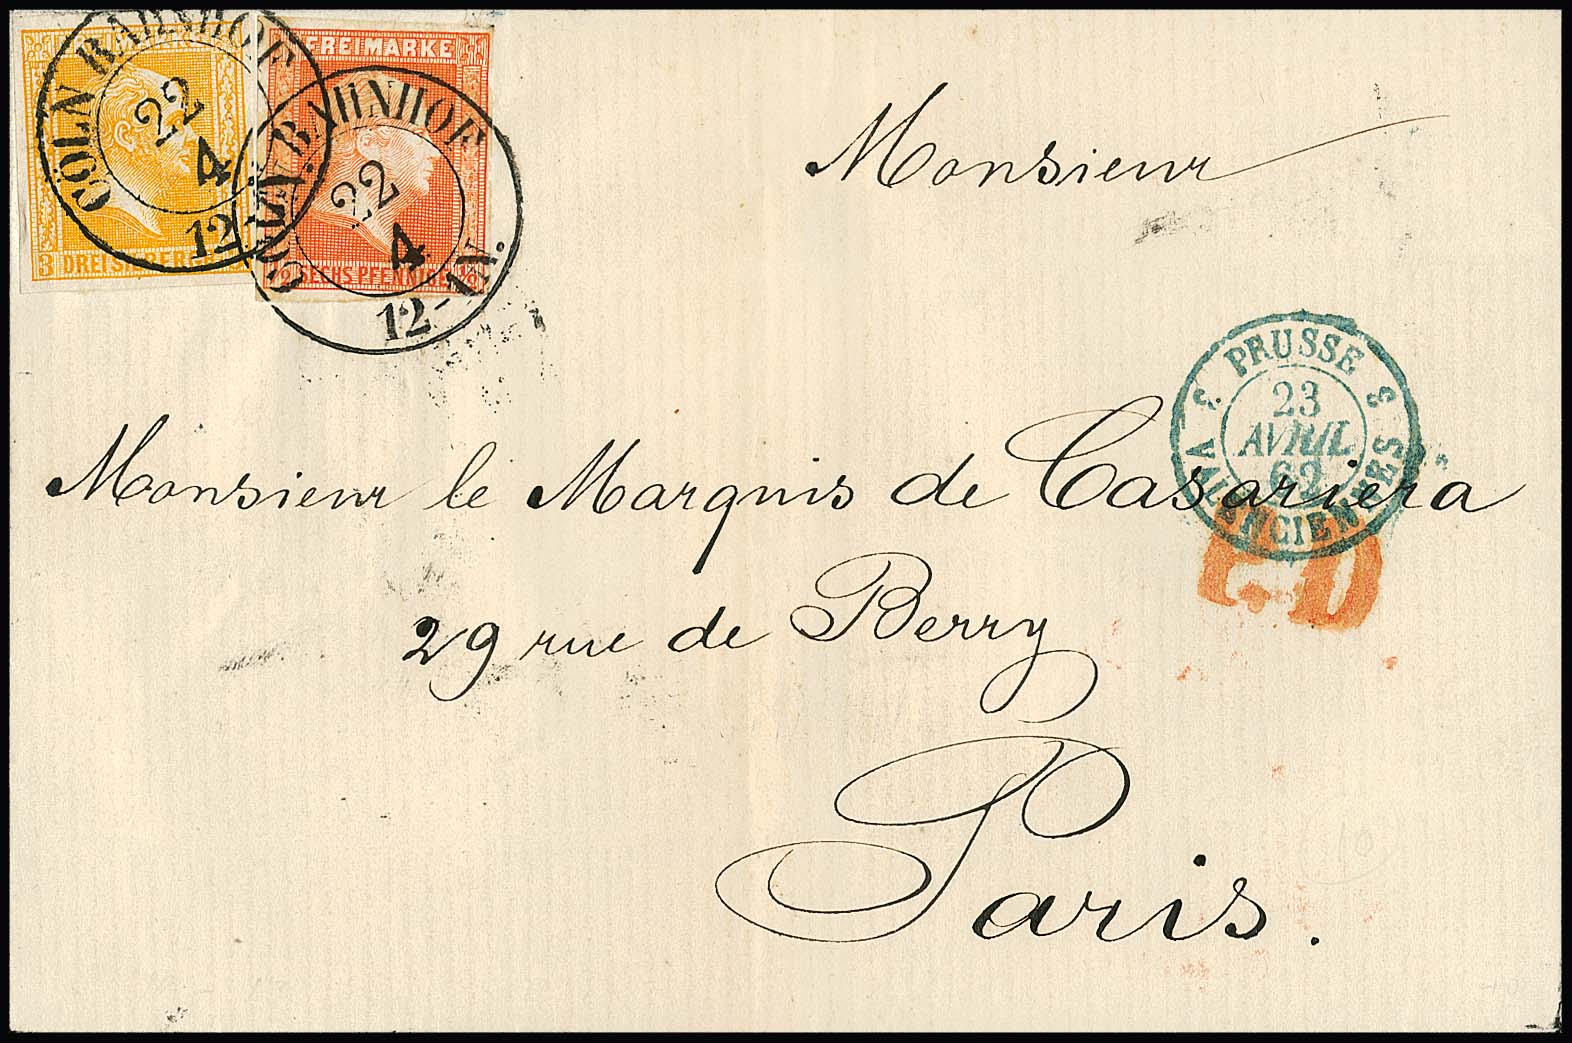 CÖLN BAHNHOF
22
4
12
3 DREI SILBERGR
FREIMARKE
CÖLN. BAHNHOF
22
4
12-1N.
1/2 SECHS PFENNIGE 1/2
Monsieur
PRUSSE
23
AVRIL
62
VALENCIENNES
P.D
Monsieur le Marquis de Casariera
29 rue de Berry
Paris.